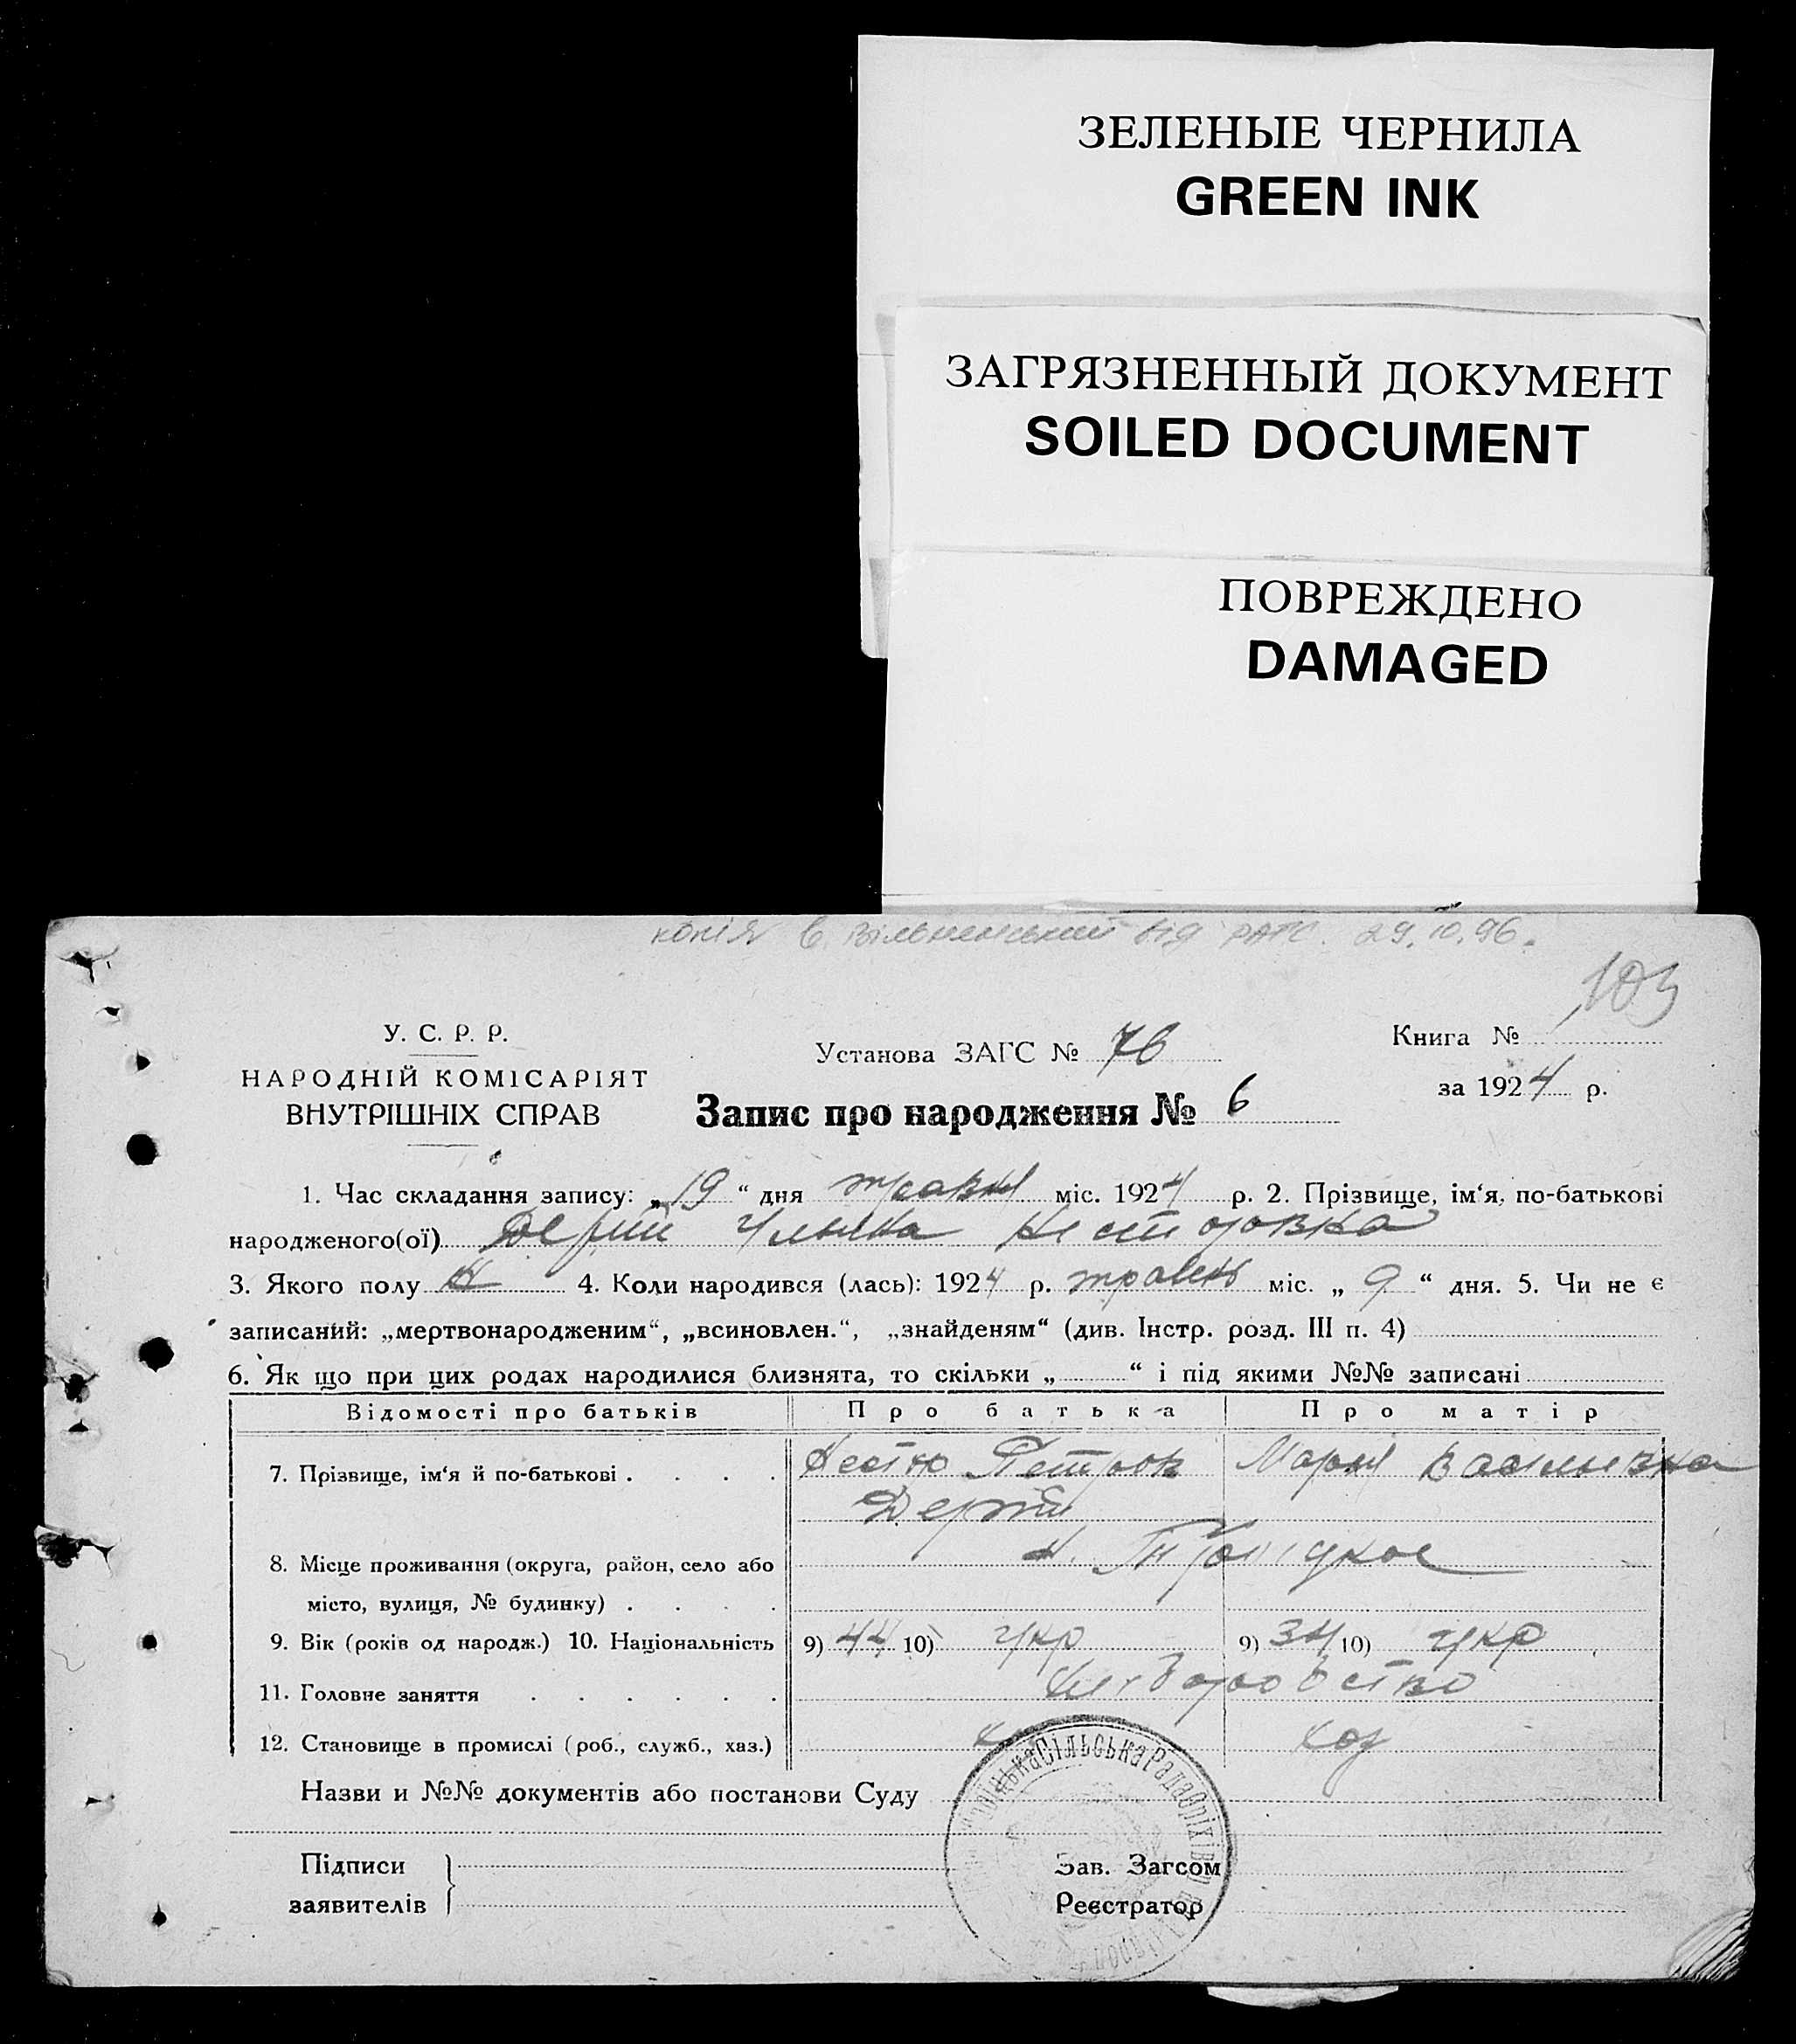 ЗЕЛЕНЫЕ ЧЕРНИЛА
GREEN INK
ЗАГРЯЗНЕННЫЙ ДОКУМЕНТ
SOILED DOCUMENT
ПОВРЕЖДЕНО
DAMAGED
копія в Вільнянський від РАГС. 29.10.96.
103
У. С. Р. Р.
НАРОДНІЙ КОМІСАРІЯТ
ВНУТРІШНІХ СПРАВ
Установа ЗАГС № 76
Книга №
за 1924 р.
Запис про народження № 6
1. Час складання запису: „19“ дня травня міс. 1924 р. 2. Прізвище, ім‘я, по-батькові
народженого(ої) Дерій Ульяна Несторовна
3. Якого полу 4. Коли народився (лась): 1924 р. травень міс. „9“ дня. 5. Чи не є
записаний: „мертвонародженим“, „всиновлен.“, „знайденям“ (див. Інстр. розд. III п. 4)
6. Як що при цих родах народилися близнята, то скільки „ “ і під якими №№ записані
Відомості про батьків Про батька Про матір
7. Прізвище, ім‘я й по-батькові . . . . Петров Мария Васильевна
Дерій
8. Місце проживання (округа, район, село або
місто, вулиця, № будинку) . . . .
9. Вік (років од народж.) 10. Національність 9) 44 10) укр 9) 34 10) укр
11. Головне заняття . . . . . . хліборобство
12. Становище в промислі (роб., служб., хаз.) хоз
Назви и №№ документів або постанови Суду
Сільська Рада
Підписи
заявителів
Зав. Загсом
Реєстратор